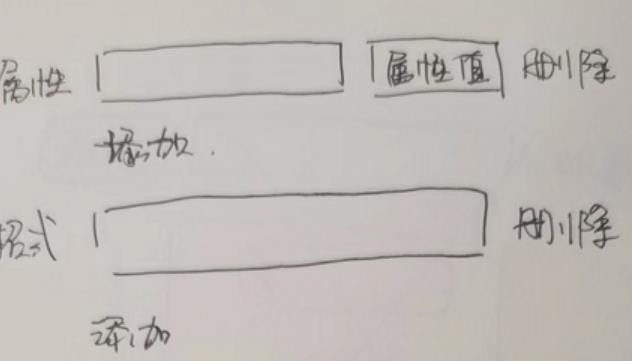 属性 属性值 删除
添加
格式 删除
添加